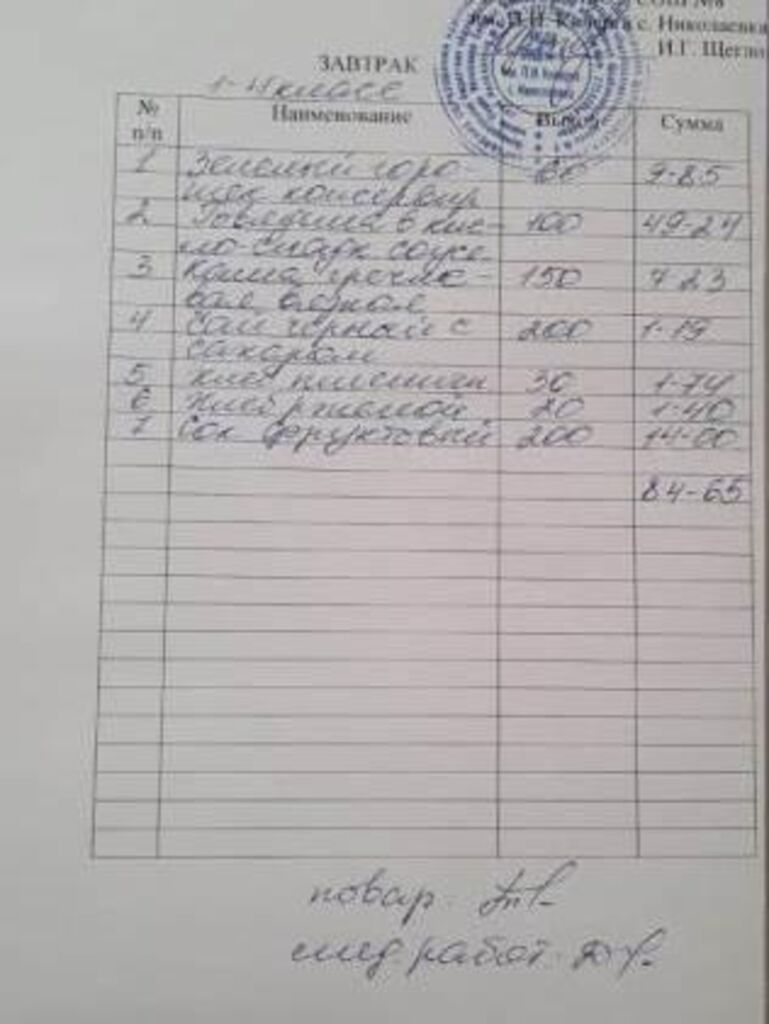 СОШ №8
им. П.И. с. Николаевка
И.Г. Щегло
ЗАВТРАК
1-4 классе
№ п/п Наименование Выход Сумма
1 Зеленый горо- 60 9-85
шек консервир
2 Говядина в кис- 100 49-24
ло-сладк соусе
3 Каша гречне- 150 7-23
вая вязкая
4 Чай черный с 200 1-19
сахаром
5 Хлеб пшеничн 30 1-74
6 Хлеб ржаной 20 1-40
7 Сок фруктовый 200 14-00
84-65
повар
мед. работ.